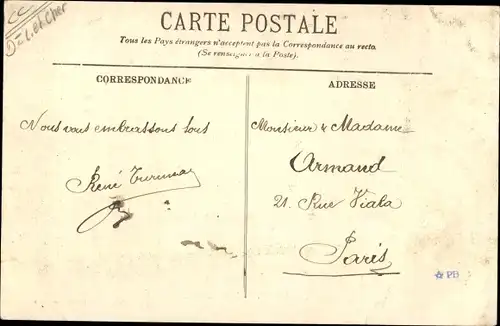 CC
Dt L. et Cher
CARTE POSTALE
Tous les Pays étrangers n'acceptent pas la Correspondance au recto.
(Se renseigner à la Poste).
CORRESPONDANCE
ADRESSE
Nous vous embrassons tous
René
Monsieur & Madame
Armand
21. Rue Viala
Paris
PB